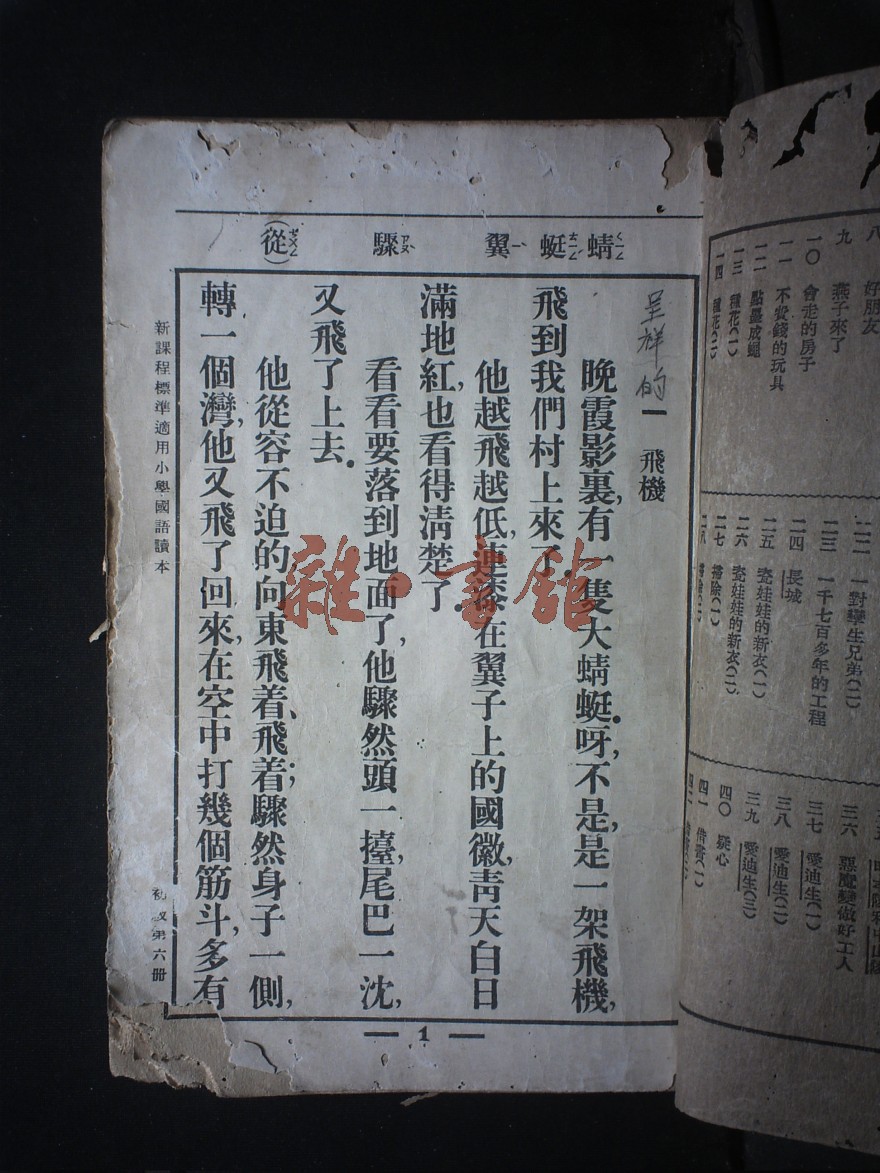 八 好朋友
九 燕子來了
一〇 會走的房子
一一 不費錢的玩具
一二 點墨成蠅
一三 種花(一)
一四 種花(二)
二二 一對孿生兄弟(二)
二三 一千七百多年的工程
二四 長城
二五 瓷娃娃的新衣(一)
二六 瓷娃娃的新衣(二)
二七 掃除(一)
二八 掃除(二)
三六 惡魔變做好工人
三七 愛迪生(一)
三八 愛迪生(二)
三九 愛迪生(三)
四〇 疑心
四一 借書(一)
四二
蜻ㄑㄧㄥ 蜓ㄊㄧㄥˊ 翼ㄧˋ 驟ㄗㄡˋ (從ㄘㄨㄥ)
呈祥的
一 飛機
晚霞影裏,有一隻大蜻蜓.呀,不是,是一架飛機,
飛到我們村上來了.
他越飛越低,連漆在翼子上的國徽,青天白日
滿地紅,也看得清楚了.
看看要落到地面了,他驟然頭一擡,尾巴一沈,
又飛了上去.
他從容不迫的,向東飛着、飛着;驟然身子一側,
轉一個灣,他又飛了回來,在空中打幾個筋斗,多有
新課程標準適用小學國語讀本
初級第六册
— 1 —
雜·書館